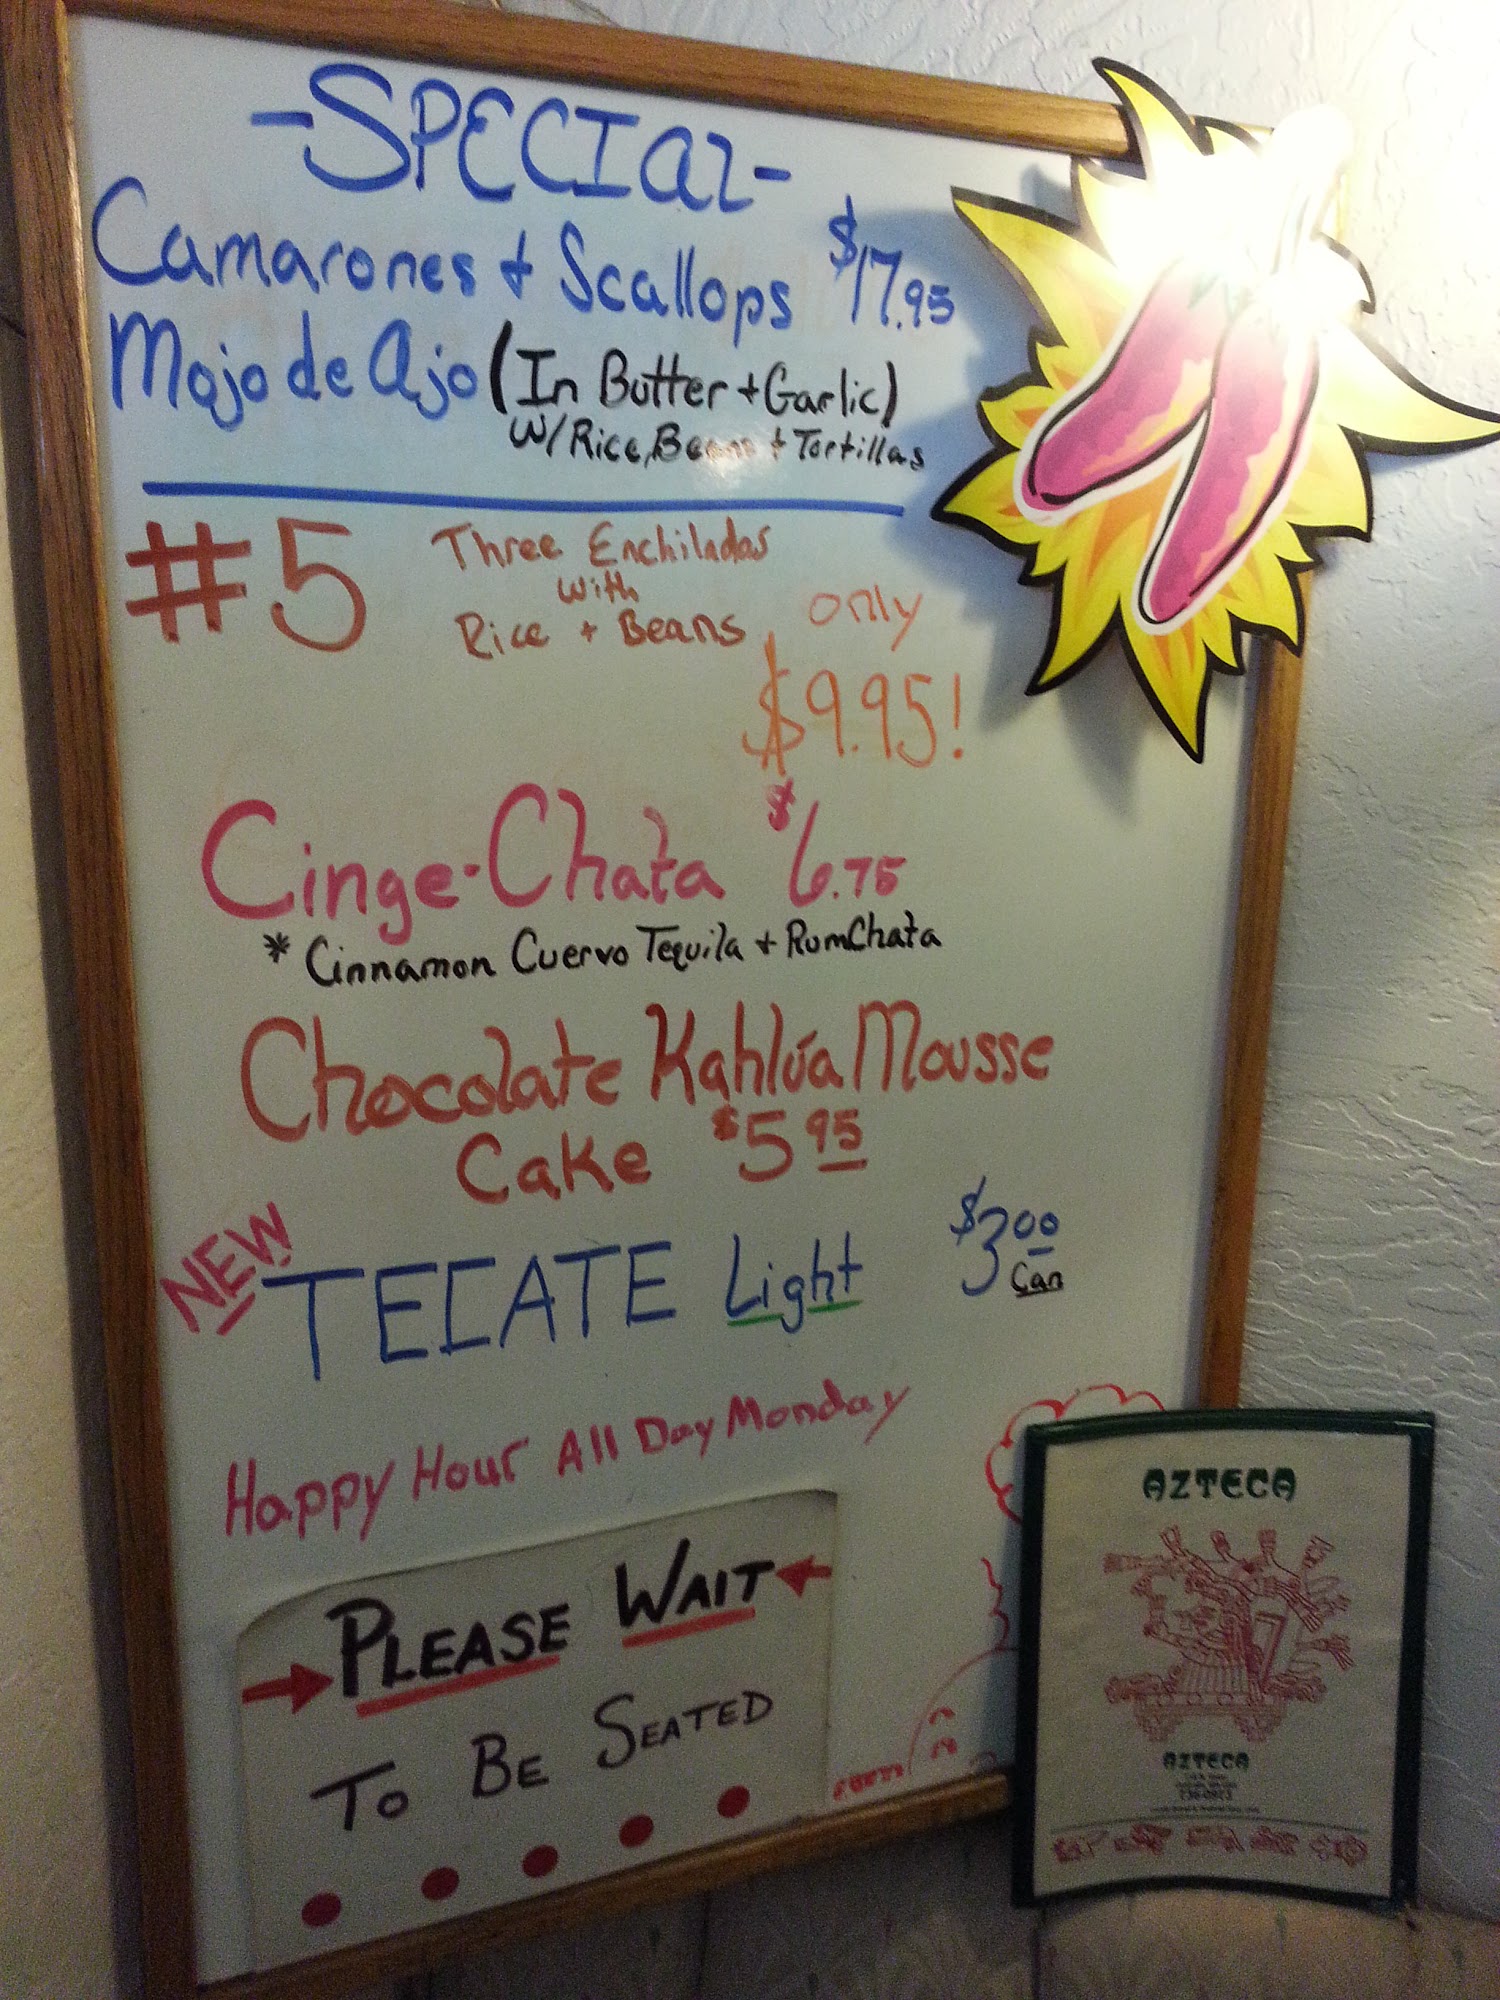 -SPECIAL-
Camarones + Scallops $17.95
Mojo de Ajo (In Butter + Garlic)
W/Rice, Beans + Tortillas
#5 Three Enchiladas
with
Rice + Beans
only
$9.95!
Cinge-Chata $6.75
* Cinnamon Cuervo Tequila + RumChata
Chocolate Kahlúa Mousse
Cake $5 95
NEW
TECATE Light $3 00
Can
Happy Hour All Day Monday
PLEASE WAIT
TO BE SEATED
AZTECA
AZTECA